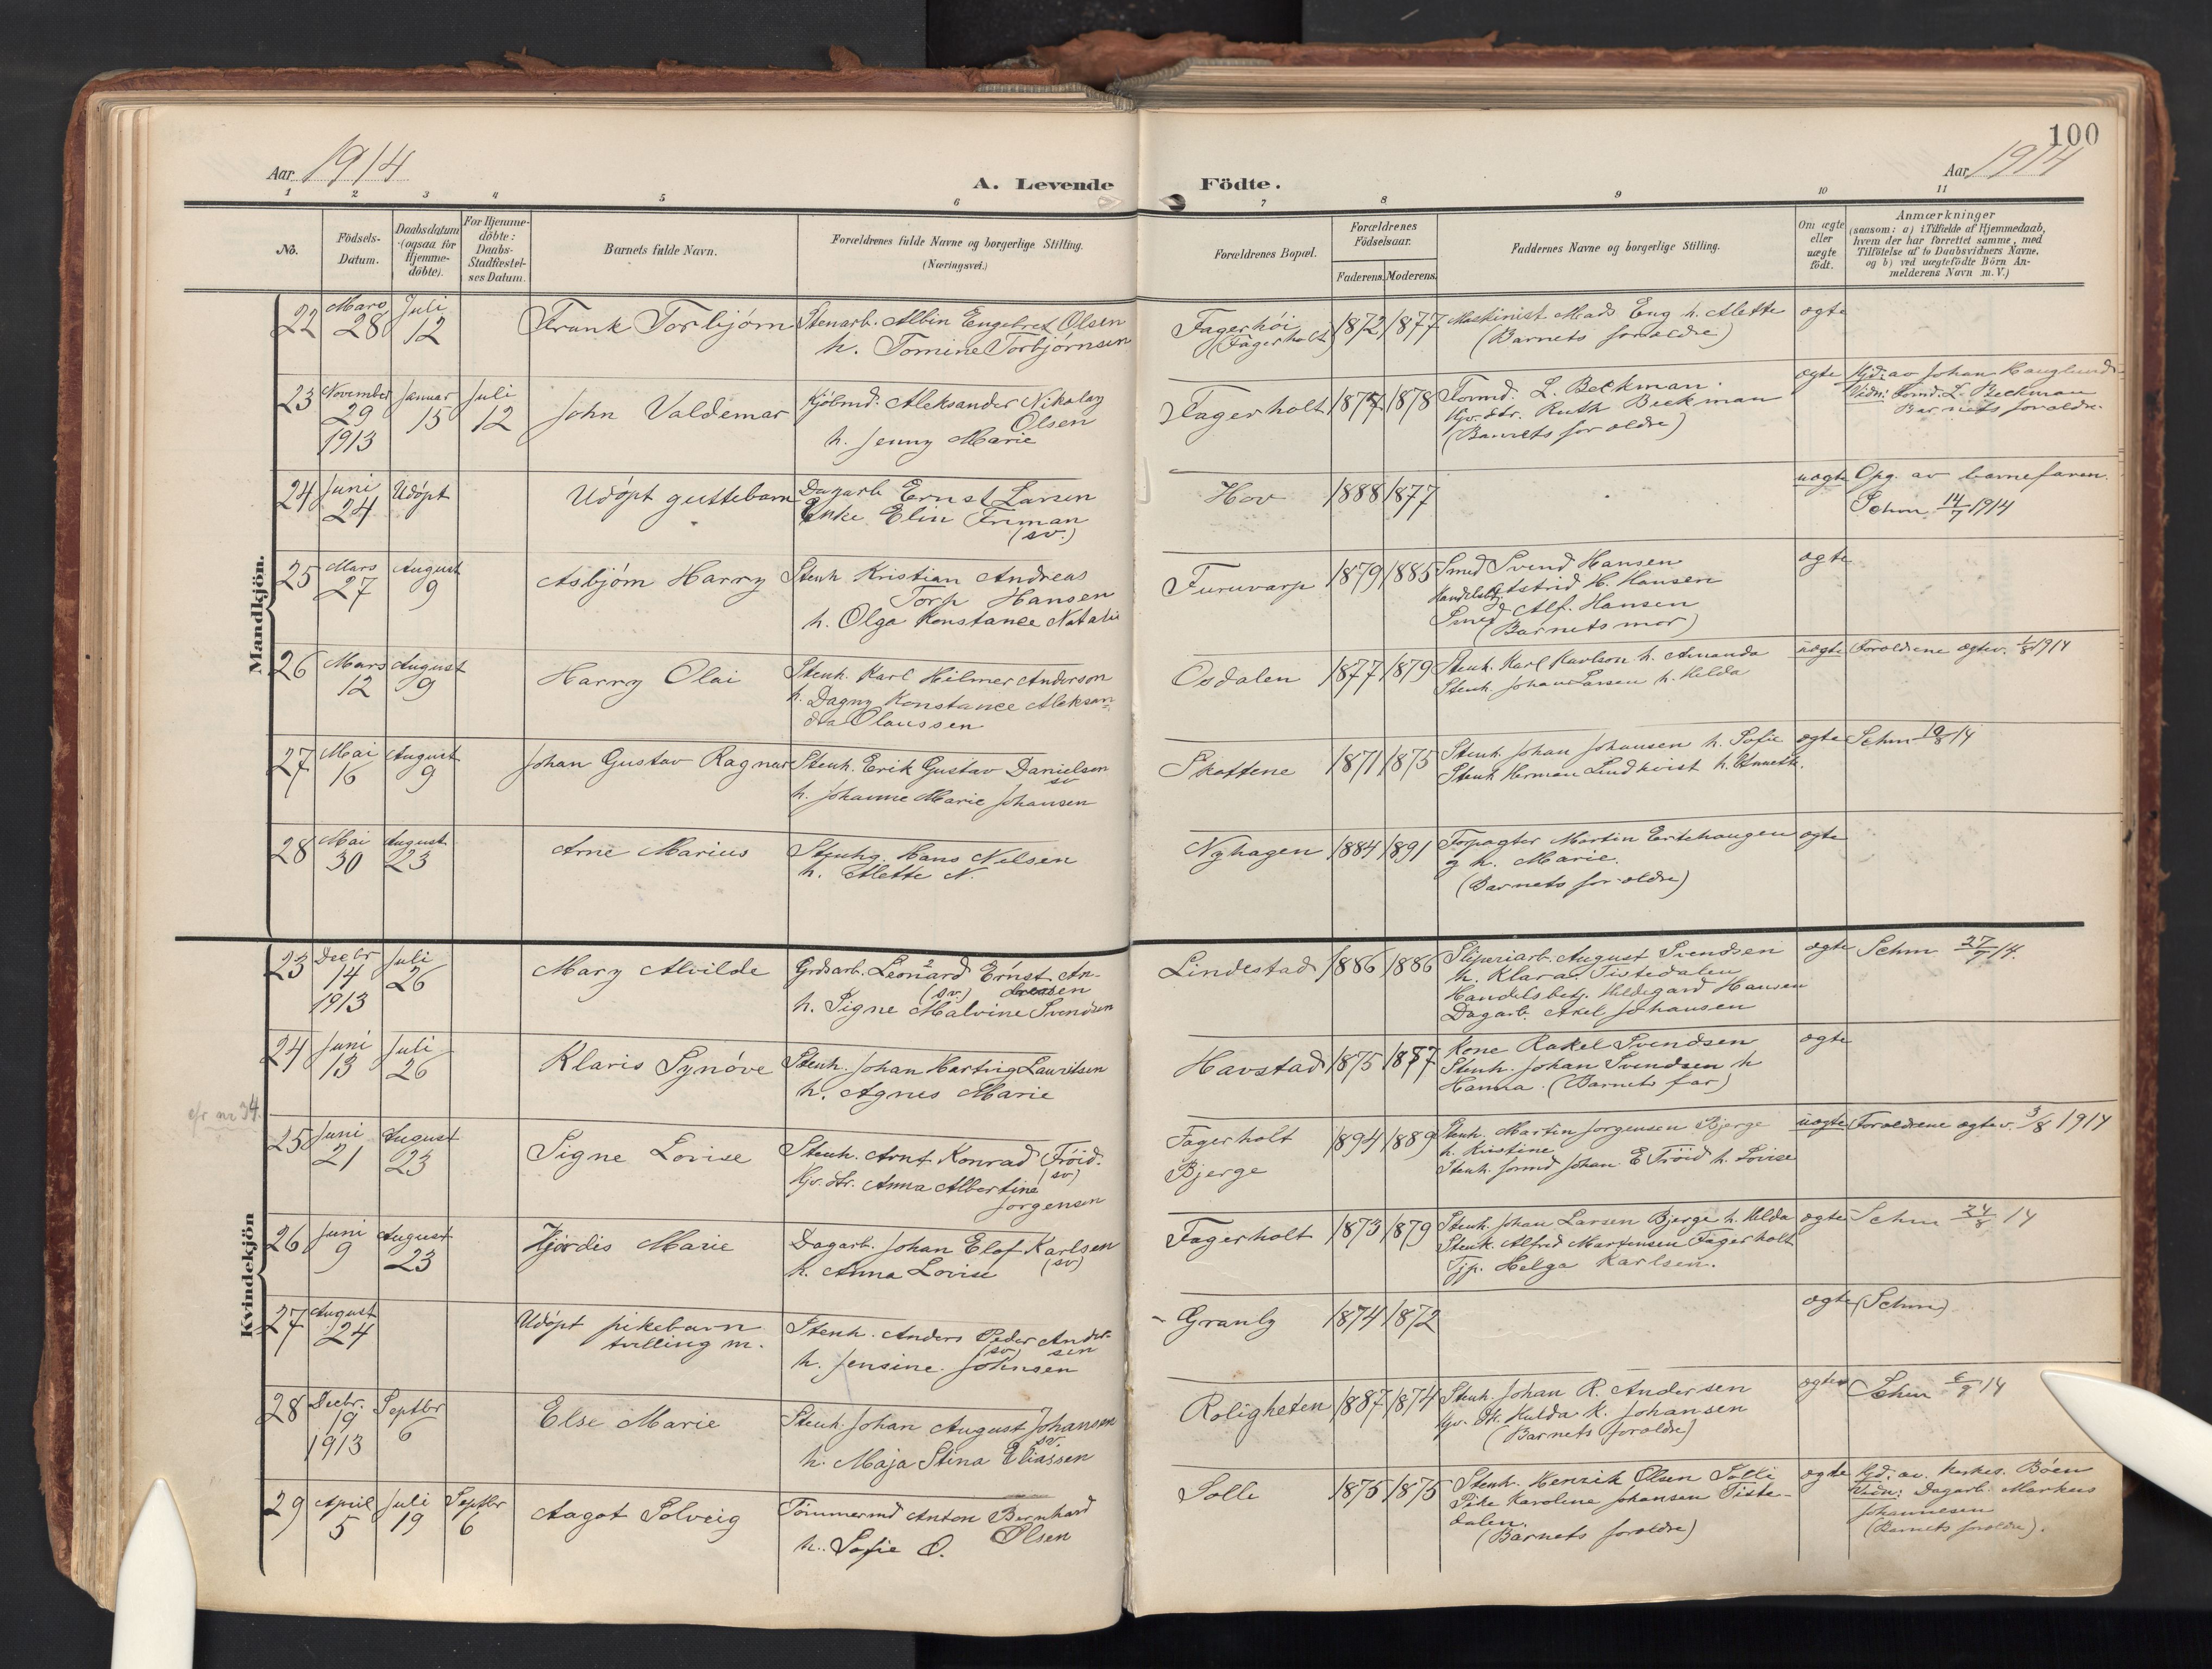 100
Aar 1914
A. Levende Födte.
Aar 1914
1 2 3 4 5 6 7 8 9 10 11
No.
Födsels-
Datum.
Daabsdatum
(ogsaa for
Hjemme-
döbte).
For Hjemme-
döbte:
Daabs-
Stadfæstel-
ses Datum.
Barnets fulde Navn.
Forældrenes fulde Navne og borgerlige Stilling.
(Næringsvei.)
Forældrenes Bopæl.
Forældrenes
Födselsaar.
Faderens. Moderens.
Faddernes Navne og borgerlige Stilling.
Om ægte
eller
uægte
födt.
Anmærkninger
(saasom: a) i Tilfælde af Hjemmedaab,
hvem der har forrettet samme, med
Tilföielse af to Daabsvidners Navne,
og b) ved uægtefödte Börn An-
melderens Navn m. V.)
Mandkjön.
22 Mars 28 Juli 12 Frank Torbjørn
Stenarb. Albin Engebret Olsen
h. Tomine Torbjørnsen
Fagerhøi
(Fagerholt)
1872 1877
Maskinist Mads Eng h. Alette
(Barnets foræl­dre)
ægte
23 November 29 1913 Januar 15 Juli 12 John Valdemar
Kjøbmd. Aleksander Nikolay
Olsen
h. Jenny Marie
Fagerholt 1877 1878
Formd. L. Beckman
Gjv. dtr. Ruth Beckman
(Barnets forældre)
ægte
Hjd. av Johan Hauglund
Vidn: Formd. L. Beckman
Barnets forældre.
24 Juni 24 Udøpt Udøpt guttebarn
Dagarb. Ernst Larsen
Enke Elin Friman
(sv.)
Hov 1888 1877
uægte
Opg. av barnefaren.
Schm 14/7 1914
25 Mars 27 August 9 Asbjørn Harry
Stenh. Kristian Andreas
Torp Hansen
h. Olga Konstance Natalie
Furuvarp 1879 1885
Smed Svend Hansen
Handelsbtj. Astrid H. Hansen
Smed Alf. Hansen
(Barnets mor)
ægte
26 Mars 12 August 9 Harry Olai
Stenh. Karl Hilmer Anderson
h. Dagny Konstance Aleksan-
dra Olaussen
Osdalen 1877 1879
Stenh. Karl Karlson h. Amanda
Stenh. Johan Larsen h. Helda
uægte
Forældrene ægtev. 1/8 1914
27 Mai 16 August 9 Johan Gustav Ragnar
Stenh. Erik Gustav Danielsen
sv
h. Johanne Marie Johansen
Skottene 1871 1875
Stenh. Johan Johansen h. Sofie
Stenh Herman Lindkvist h. Annette.
ægte
Schm 10/8 14
28 Mai 30 August 23 Arne Marius
Stenhg. Hans Nilsen
h. Alette N.
Nyhagen 1884 1891
Forpagter Martin Ertehaugen
g h. Marie.
(Barnets forældre)
ægte
Kvindekjön
23 Decbr 14 1913 Juli 26 Mary Alvilde
Grdsarb. Leonard Ernst An-
(sv.) dreasen
h. Signe Malvine Svendsen
Lindestad 1886 1886
Sliperiarb. August Svendsen
h. Klara. Tistedalen
Handelsbetj. Hildegard Hansen
Dagarb. Axel Johansen
ægte
Schm 27/7 14.
24 Juni 13 Juli 26 Klaris Synøve
Stenh. Johan Hartvig Lauritsen
h. Agnes Marie
Havstad 1875 1887
Kone Rakel Svendsen
Stenh. Johan Svendsen h
Hanna. (Barnets far)
ægte
cfr nr 34.
25 Juni 21 August 23 Signe Lovise
Stenh. Arnt Konrad Trøid.
(sv)
Gjv. dtr. Anna Albertine
Jørgensen
Fagerholt
Bjerge
1894 1889
Stenh. Martin Jørgensen Bjerge
h. Kristine
Stenh. formd Johan E Trøid h. Lovise
uægte
Forældrene ægtev. 3/8 1914
26 Juni 9 August 23 Hjørdis Marie
Dagarb. Johan Elof Karlsen
(sv)
h. Anna Lovise
Fagerholt 1873 1879
Stenh. Johan Larsen Bjerge h. Hilda
Stenh. Alfred Martinsen Fagerholt
Tjp. Helga Karlsen.
ægte
Schm 24/8 14
27 August 24
Udøpt pikebarn
tvilling m.
Stenh. Anders Peder Ander-
(sv) sen
h. Jensine Johnsen
Granly 1874 1872
ægte
(Schm)
28 Decbr. 19 1913 Septbr 6 Else Marie
Stenh. Johan August Johansen
sv.
h. Maja Stina Eliassen
Roligheten 1887 1874
Stenh. Johan R. Andersen
Gjv. dtr. Hulda K. Johansen
(Barnets forældre)
ægte
Schm 6/9 14
29 April 5 Juli 19 Septbr 6 Aagot Solveig
Tømmermd Anton Bernhard
Olsen
h. Sofie O.
Solli 1875 1875
Stenh. Henrik Olsen Solli
Pike Karoline Johansen Tiste-
dalen.
(Barnets forældre)
ægte
Hjd. av. Bøen
Vidn: Dagarb. Markus
Johannesen
(Barnets forældre).